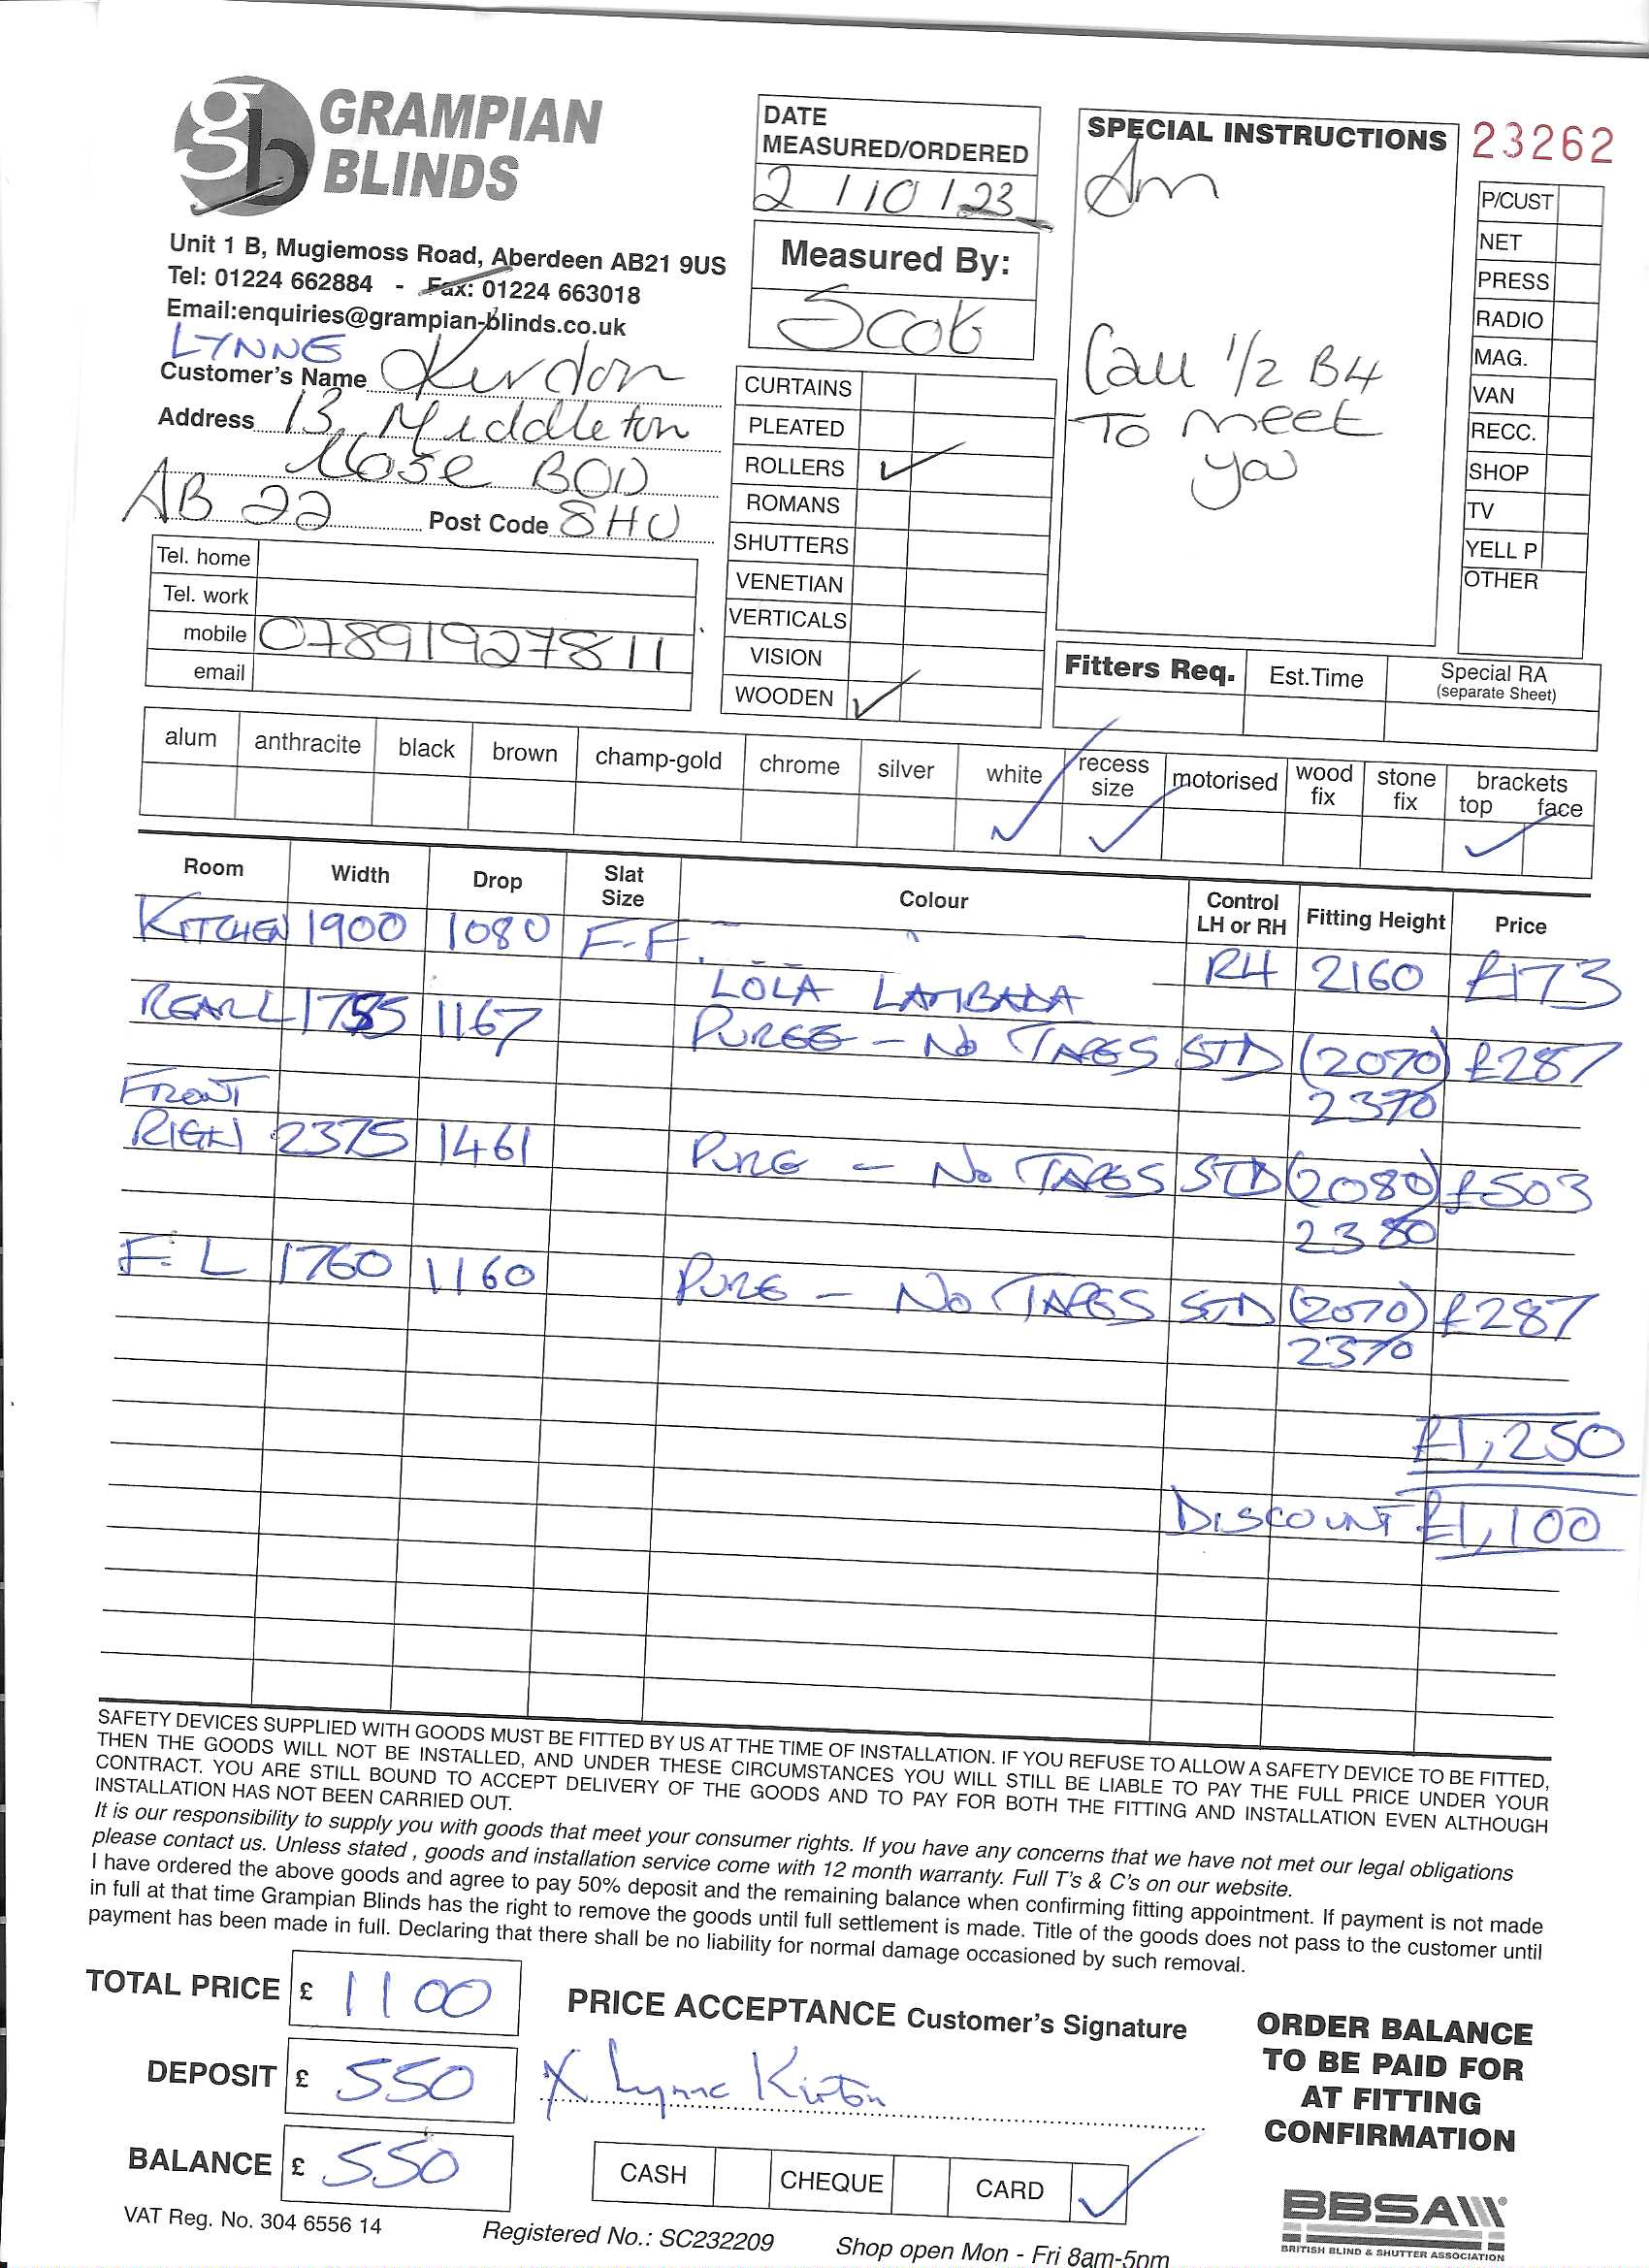 gb GRAMPIAN BLINDS
Unit 1 B, Mugiemoss Road, Aberdeen AB21 9US
Tel: 01224 662884 - Fax: 01224 663018
Email:enquiries@grampian-blinds.co.uk
LYNNE
Customer's Name
Address 13 Middleton
Close BOD
AB 22 Post Code 8HU
Tel. home
Tel. work
mobile 07891927811
email
DATE MEASURED/ORDERED
2 / 10 / 23
Measured By:
Scot
CURTAINS
PLEATED
ROLLERS ✓
ROMANS
SHUTTERS
VENETIAN
VERTICALS
VISION
WOODEN ✓
SPECIAL INSTRUCTIONS
Am
Call 1/2 B4
To meet
you
23262
P/CUST
NET
PRESS
RADIO
MAG.
VAN
RECC.
SHOP
TV
YELL P
OTHER
Fitters Req. Est.Time Special RA (separate Sheet)
alum anthracite black brown champ-gold chrome silver white ✓ recess size ✓ motorised wood fix stone fix brackets top ✓ face
Room Width Drop Slat Size Colour Control LH or RH Fitting Height Price
KITCHEN 1900 1080 F-F. LOLA LAMBADA RH 2160 £173
REAR L 1167 - No TAPES STD (2070) £287
2370
FRONT
RIGH 2375 1461 PURE - No TAPES STD (2080) £503
2380
F. L 1760 1160 PURE - No TAPES STD (2070) £287
2370
£1,250
DISCOUNT £1,100
SAFETY DEVICES SUPPLIED WITH GOODS MUST BE FITTED BY US AT THE TIME OF INSTALLATION. IF YOU REFUSE TO ALLOW A SAFETY DEVICE TO BE FITTED,
THEN THE GOODS WILL NOT BE INSTALLED, AND UNDER THESE CIRCUMSTANCES YOU WILL STILL BE LIABLE TO PAY THE FULL PRICE UNDER YOUR
CONTRACT. YOU ARE STILL BOUND TO ACCEPT DELIVERY OF THE GOODS AND TO PAY FOR BOTH THE FITTING AND INSTALLATION EVEN ALTHOUGH
INSTALLATION HAS NOT BEEN CARRIED OUT.
It is our responsibility to supply you with goods that meet your consumer rights. If you have any concerns that we have not met our legal obligations
please contact us. Unless stated , goods and installation service come with 12 month warranty. Full T's & C's on our website.
I have ordered the above goods and agree to pay 50% deposit and the remaining balance when confirming fitting appointment. If payment is not made
in full at that time Grampian Blinds has the right to remove the goods until full settlement is made. Title of the goods does not pass to the customer until
payment has been made in full. Declaring that there shall be no liability for normal damage occasioned by such removal.
TOTAL PRICE £ 1100
DEPOSIT £ 550
BALANCE £ 550
PRICE ACCEPTANCE Customer's Signature
X Lynne Kirton
CASH CHEQUE CARD ✓
ORDER BALANCE
TO BE PAID FOR
AT FITTING
CONFIRMATION
BBSA
BRITISH BLIND & SHUTTER ASSOCIATION
VAT Reg. No. 304 6556 14
Registered No.: SC232209
Shop open Mon - Fri 8am-5pm